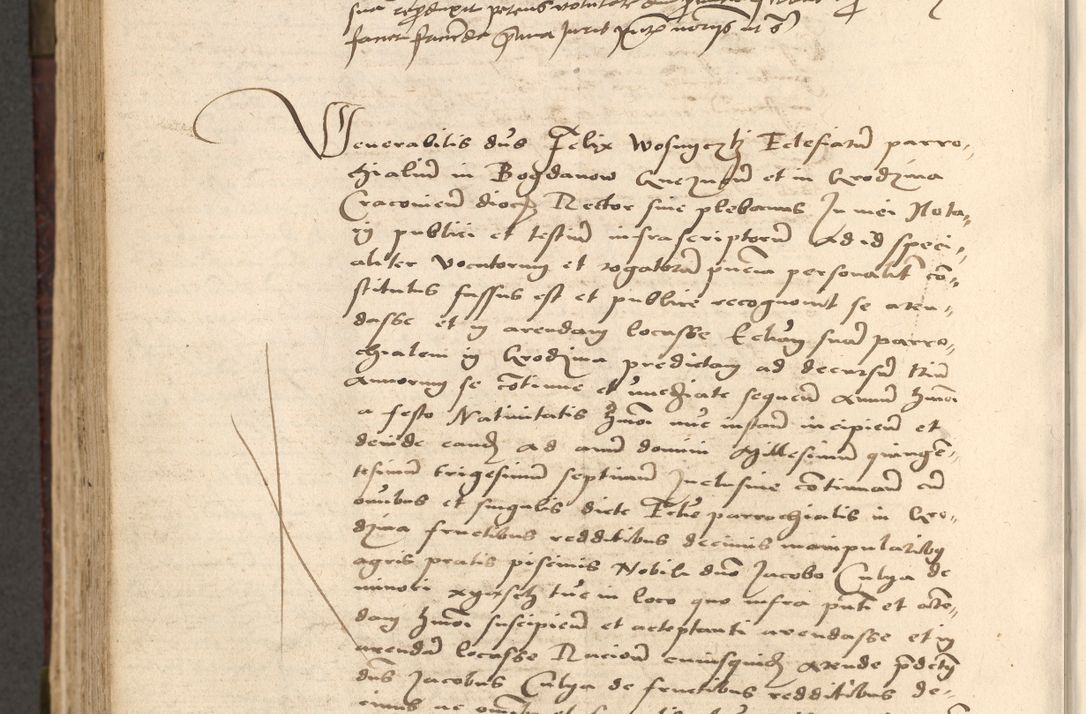 fieri facienda prima juris
Venerabilis dns Felix Wosnyczky Eclesiarum parro-
chialium in Bogdanow et in Grodzina
Craconien dioc Rector sive plebanus In mei Nota-
rij publici et testium infrascriptorum ad id speci-
aliter vocatorum et rogatorum pntia personaliter con-
stitutus fassus est et publice recognovit se aren-
dasse et in arendam locasse Ecliam suam parro-
chialem in Grodzina predictam ad decursum trium
Annorum se continue et immediate sequen annum hmoi
a festo Nativitatis hmoi nunc instan incipien et
deinde eand ad annum domini Millesimum quingen-
tesimum trigesimum septimum Inclusive continuand cum
omnibus et singulis dicte Eclie parrochialis in Gro-
dzina fructibus redditibus decimis manipularibus
agris pratis piscinis Nobili dno Jacobo Culya de
minori tunc in loco quo infra pnti et aren-
dam hmoi suscipien et acceptanti arendasse et in
arendam locasse Racione cuiusquidem arende
dns Jacobus Culya de fructibus redditibus de-
cimis ac